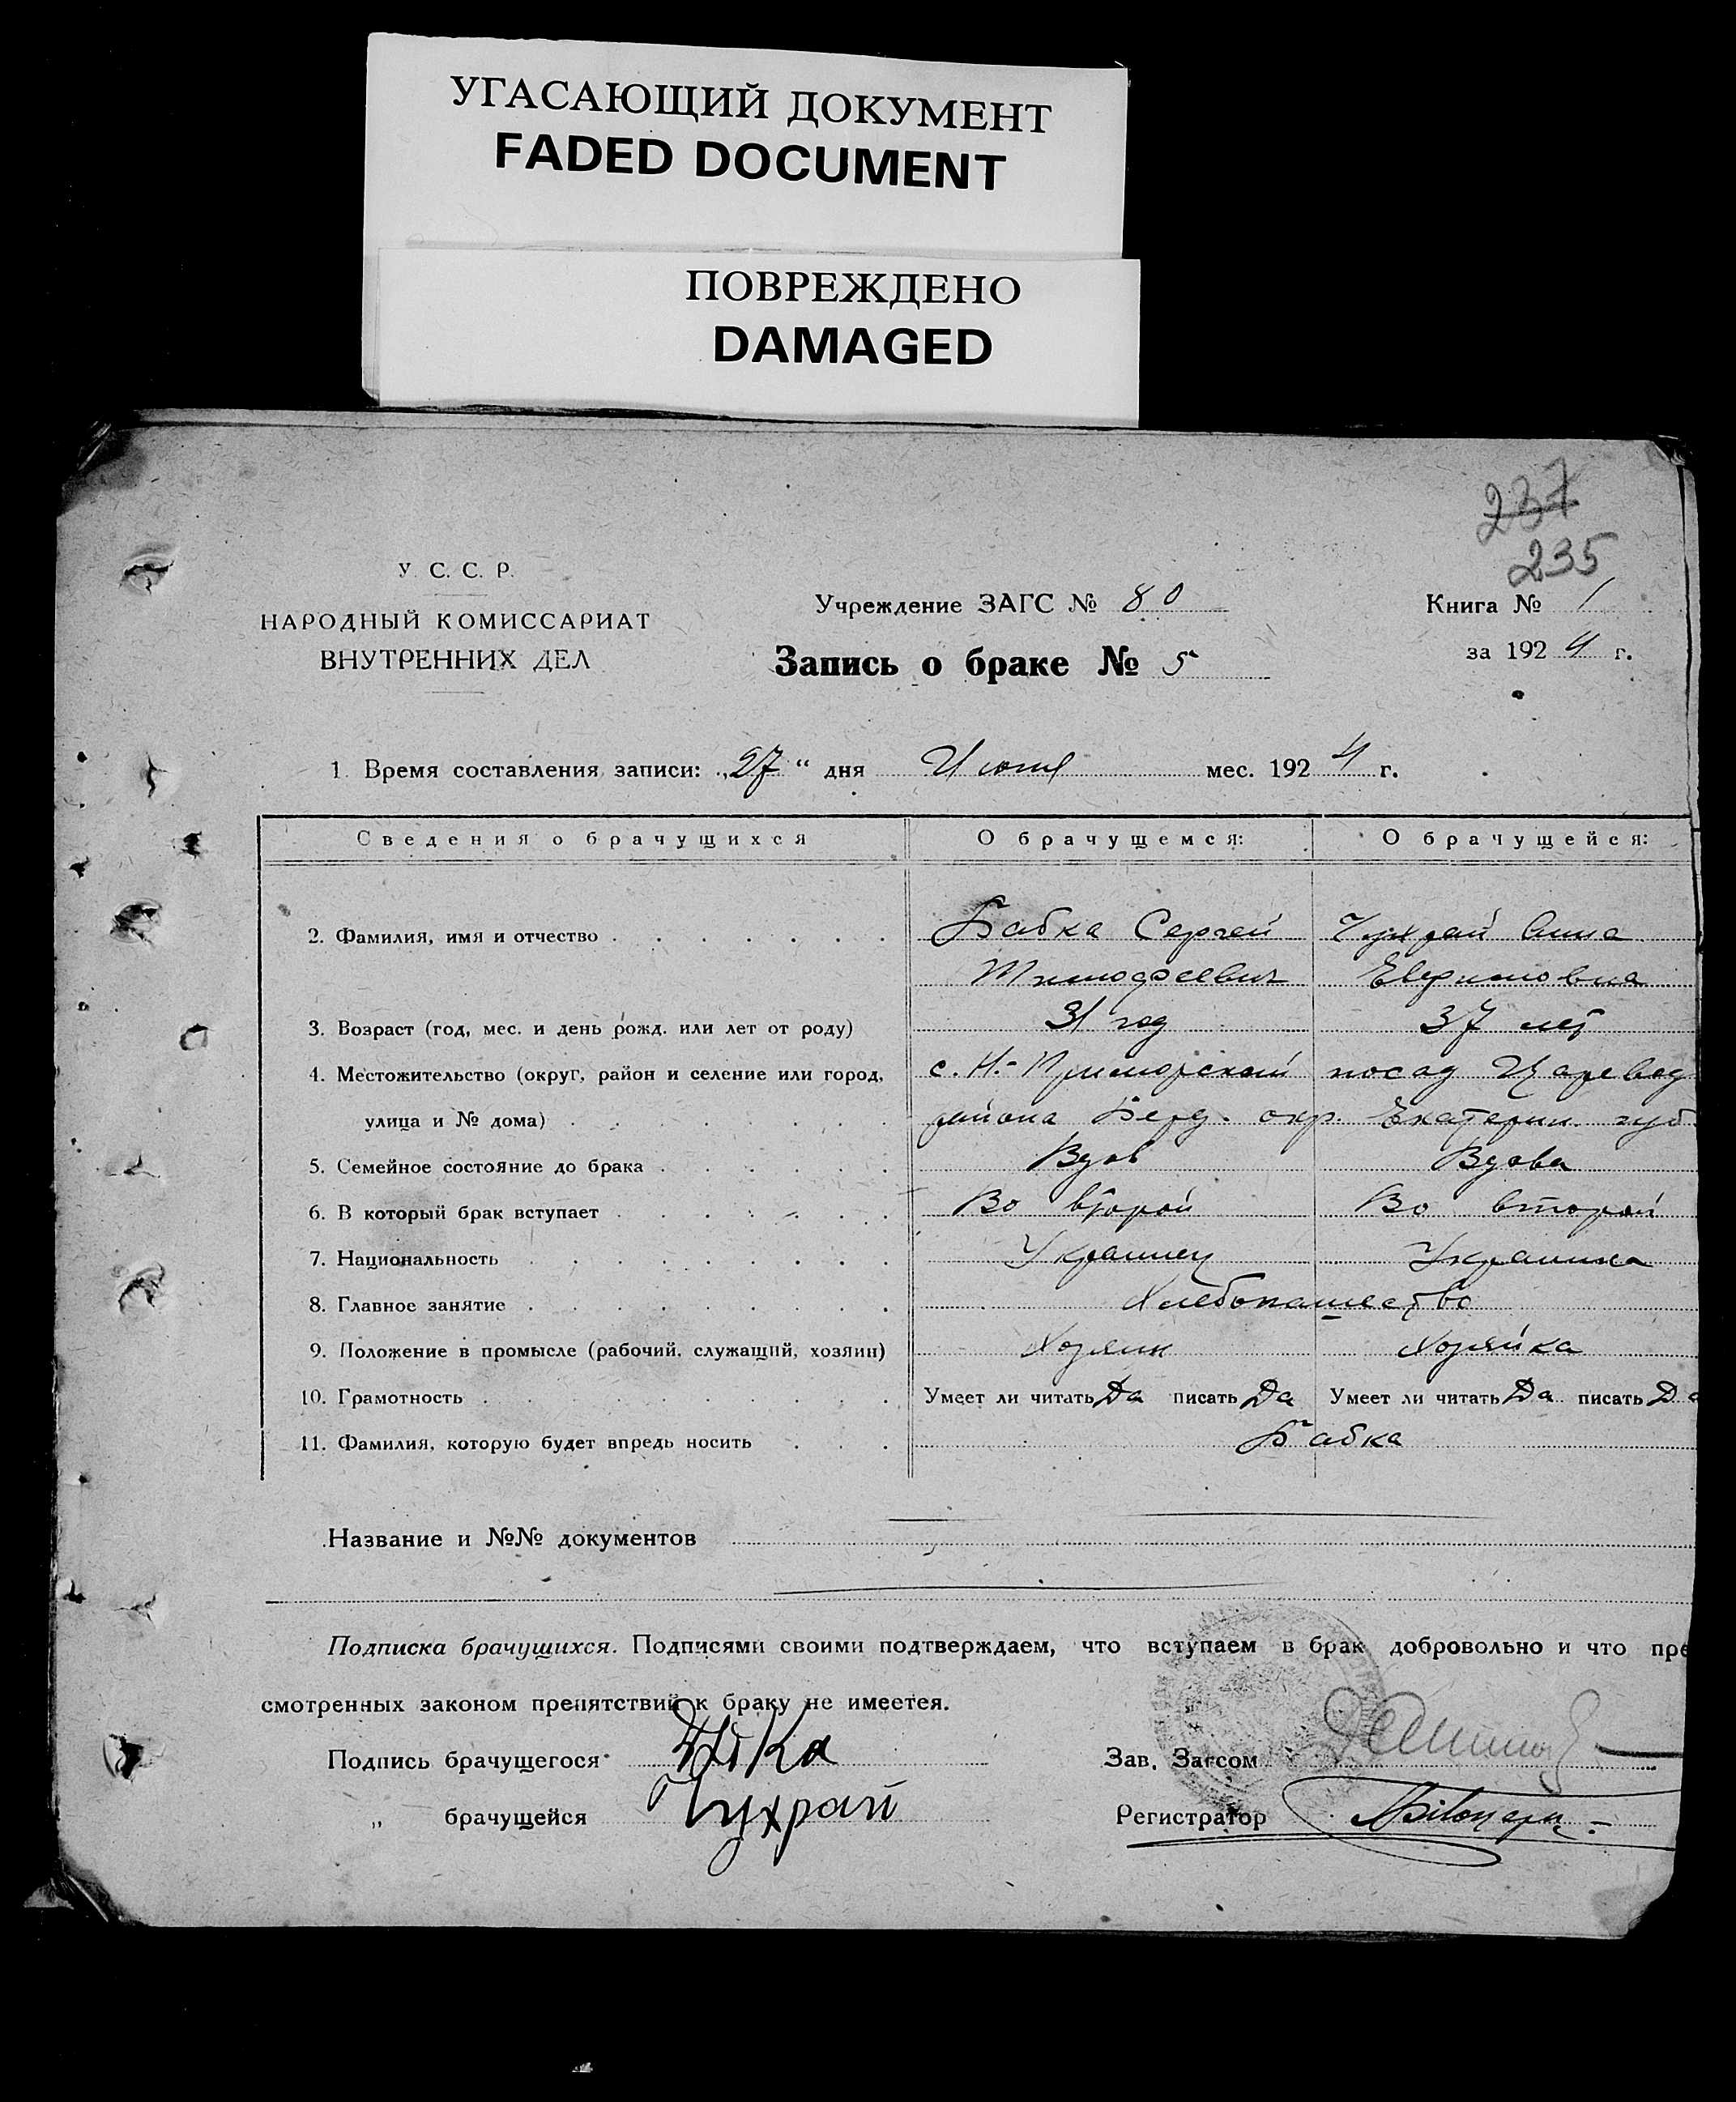 УГАСАЮЩИЙ ДОКУМЕНТ
FADED DOCUMENT
ПОВРЕЖДЕНО
DAMAGED
237
235
У. С. С. Р.
НАРОДНЫЙ КОМИССАРИАТ
ВНУТРЕННИХ ДЕЛ
Учреждение ЗАГС № 80
Запись о браке № 5
Книга № 1
за 1924 г.
1. Время составления записи: „27“ дня Июня мес. 1924 г.
Сведения о брачущихся О брачущемся: О брачущейся:
2. Фамилия, имя и отчество Бабка Сергей Чухрай Анна
Тимофеевич
3. Возраст (год, мес. и день рожд. или лет от роду) 31 год 37 лет
4. Местожительство (округ, район и селение или город, с. Н.-Приморский посад Царевод
улица и № дома) района Берд. окр. Екатерин. губ.
5. Семейное состояние до брака Вдов Вдова
6. В который брак вступает Во второй Во второй
7. Национальность Украинец Украинка
8. Главное занятие Хлебопашество
9. Положение в промысле (рабочий, служащий, хозяин) Хозяин Хозяйка
10. Грамотность Умеет ли читать Да писать Да Умеет ли читать Да писать Да
11. Фамилия, которую будет впредь носить Бабка
Название и №№ документов
Подписка брачущихся. Подписями своими подтверждаем, что вступаем в брак добровольно и что пре
смотренных законом препятствий к браку не имеется.
Подпись брачущегося Зав. Загсом
„ брачущейся Чухрай Регистратор